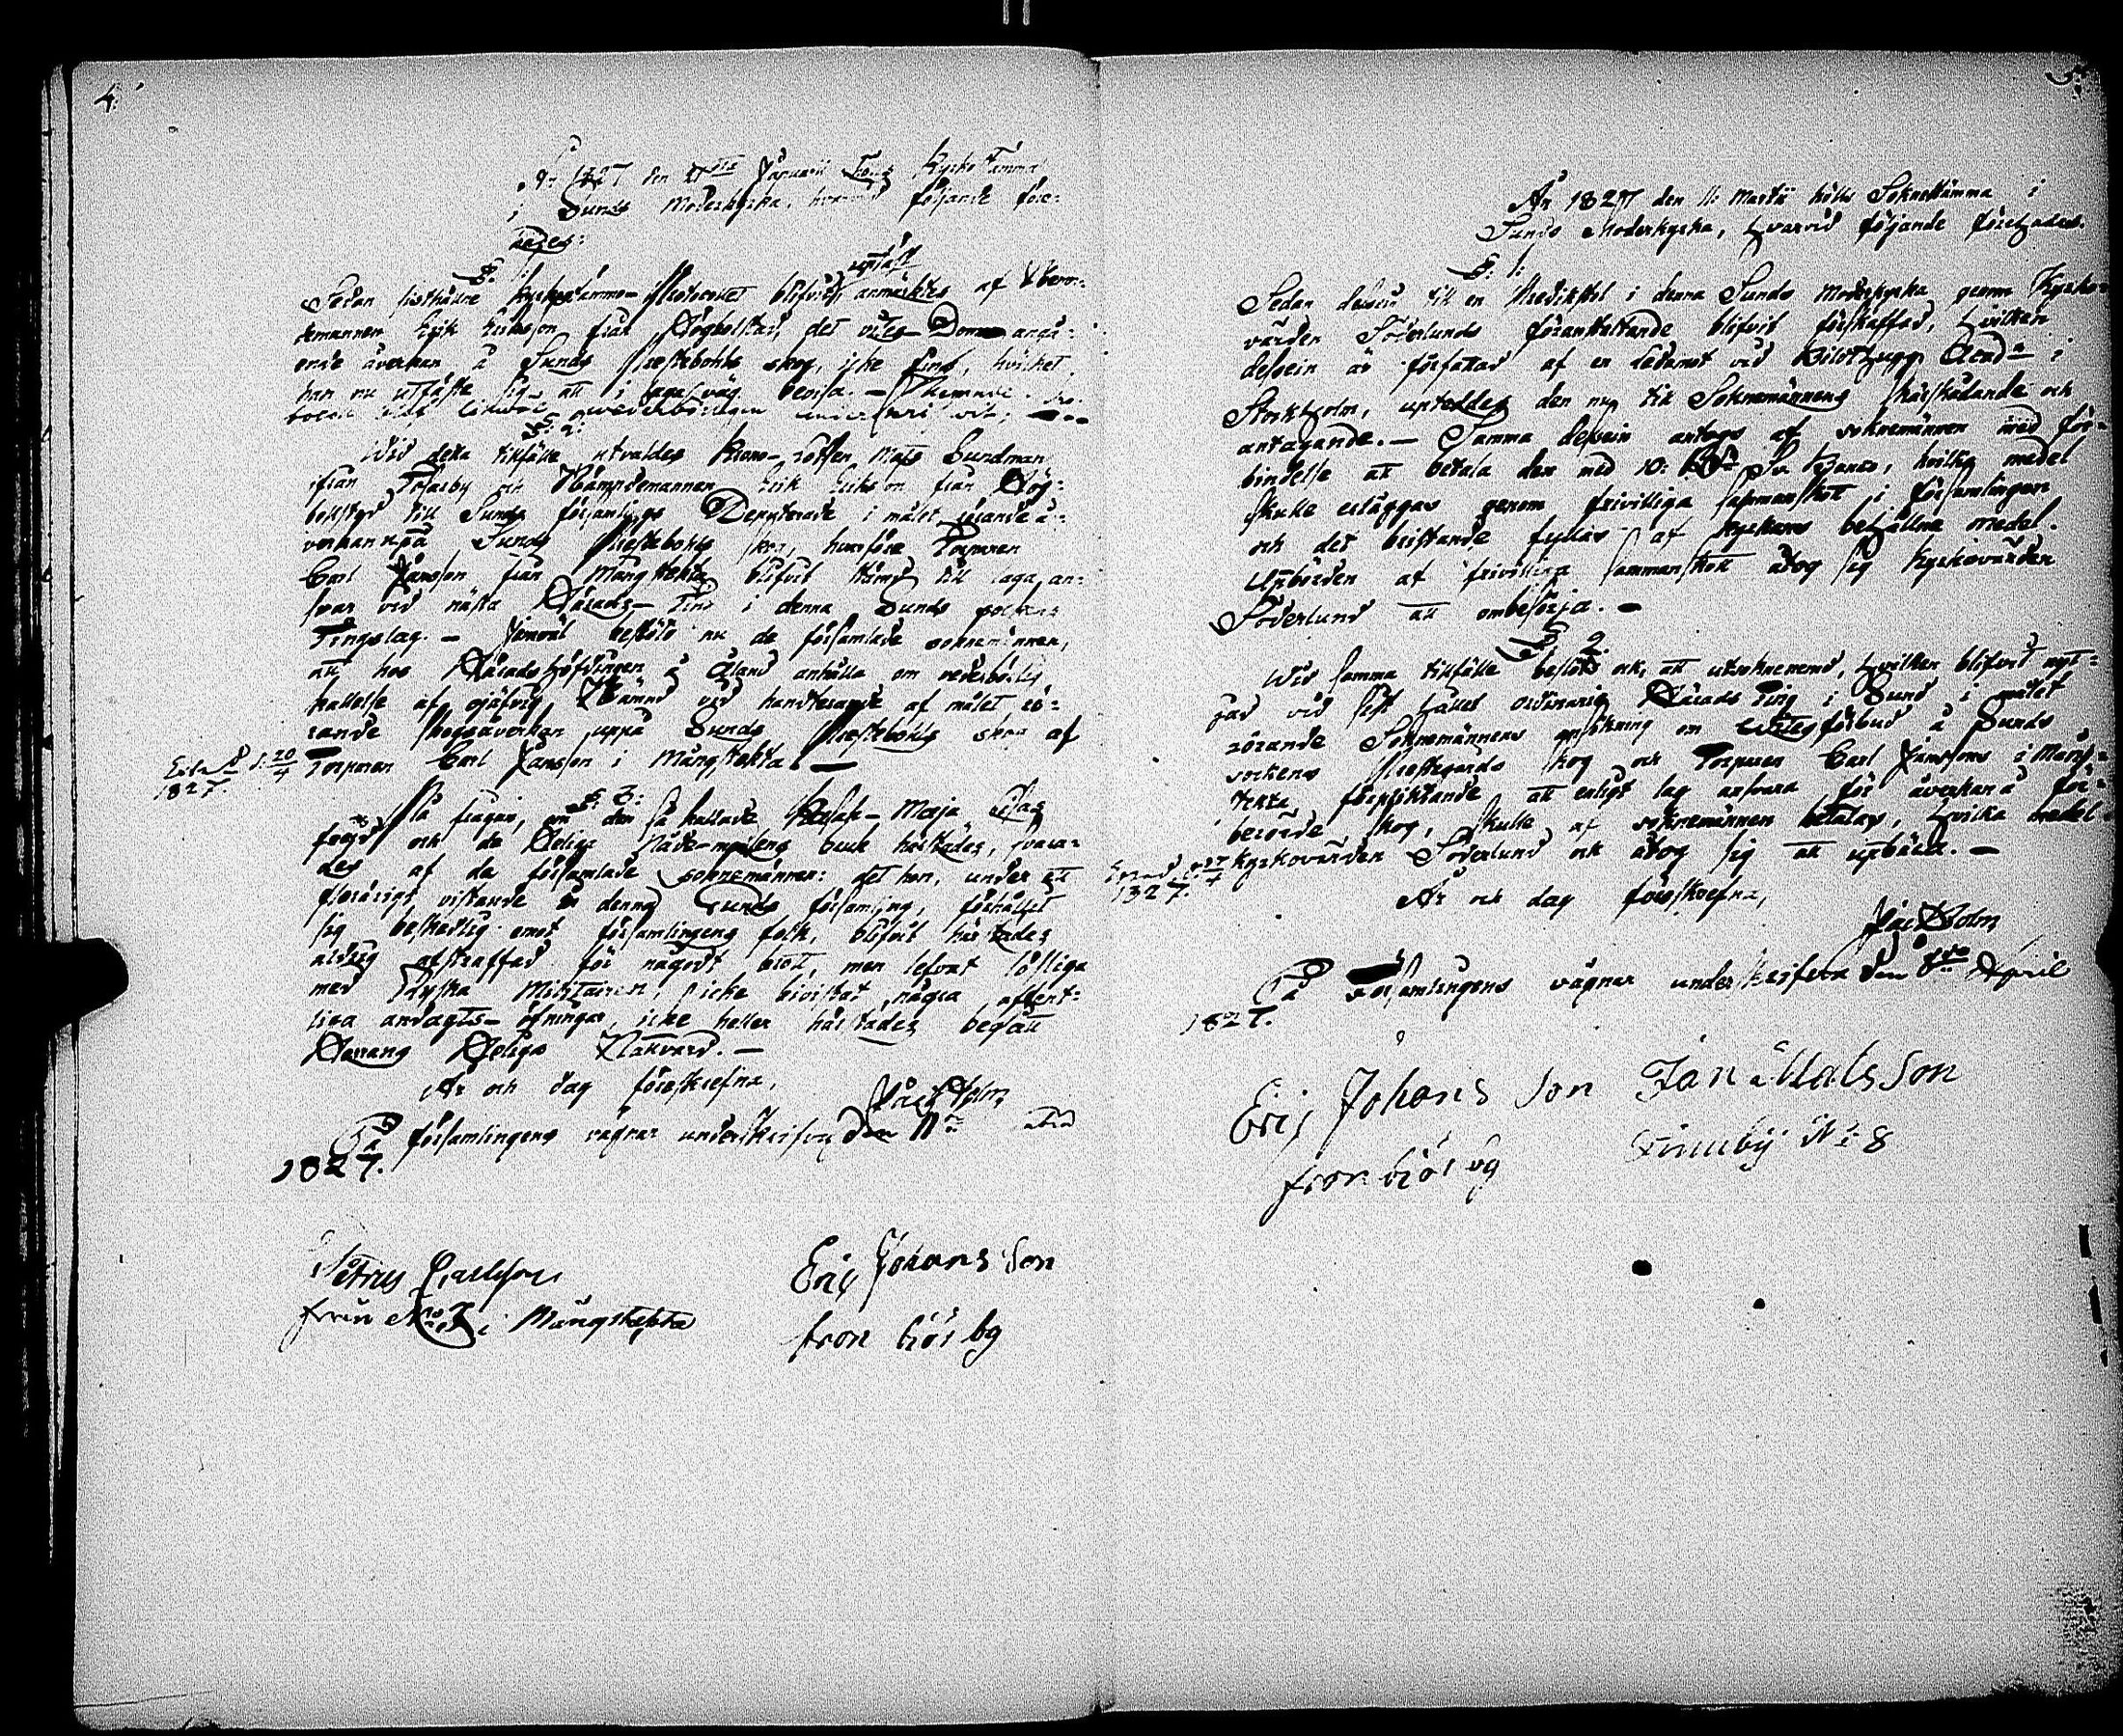 4.
År 1827 den 21 Januarii Kyrkostämma
i Sunds Moderkyrka, hvarvid följande före-
tages:
§. 1:
upläst
Sedan sisthållne Kyrkostämmo-Protocollet blifvit, anmärktes af
demannen Erik Eriksson från Högbolstad, det vites Dom angå-
ende åverkan å Sunds Prestebohls skog, icke fins, hvilket
han nu utfäste sig att i laga väg bevisa. —
§. 2:
Wid detta tillfälle utvaldes Krono-Lotsen Mats Sundman
ifrån och Nämndemannen Erik Eriksson från Hög-
bolstad till Sunds församlings Deputerade i målet rörande å-
verkan uppå Sunds Prestebohls skog, hvarföre Torparen
Carl Jansson från Mångstekta blifvit stämd till laga an-
svar vid nästa Härads-Ting i denna Sunds sockens
Tingslag. — Jemväl beslöto nu de församlade soknemännen,
att hos Häradshöfdingen å Åland anhålla om vederbörlig
kallelse af ojäfvig Nämnd vid handterande af målet rö-
rande skogsåverkan uppå Sunds Prestebohls skog af
Torparen Carl Jansson i Mångstekta. —
d. 20/4
1827.
§. 3:
På frågan, om den så kallade Maja
frejd och de Helige Nåde-medlens bruk härstädes, svara-
des af de församlade sokneménnen: det hon, under ett
flerårigt vistande i denna Sunds församling, förhållit
sig beskedlig emot församlingens folk, blifvit härstädes
aldrig afstraffad för någodt brott, men lefvat lösliga
med Ryska Militairen, icke bivistat några offent-
liga andagts-öfningar, icke heller härstädes begått
Herrans Heliga Nattvard. —
År och dag föreskrefne,
Holm
På församlingens vägnar underskrifves den 11
1827.
Petrus Carlsson
från No i Mångstekta
Eric Johans Son
fron biörby
År 1827 den 11 Martii hölls Soknestämma i
Sunds Moderkyrka, hvarvid följande företogades.
§. 1:
Sedan dessein till en Predikstol i denna Sunds Moderkyrka genom Kyrko-
värden Söderlunds föranstaltande blifvit förskaffad, hvilken
dessein är författad af en Ledamot vid Bildthugg. Acad. i
Stockholm, upteddes den nu till Soknemännens skärskådande och
antagande. — Samma dessein antogs af soknemännen med för-
bindelse att betala den med 10: Banco, hvilka medel
skulle erläggas genom frivilliga sammanskott i församlingen
och det bristande fyllas af kyrkans behållne medel.
Upbörden af frivilliga sammanskott åtog sig Kyrkovärden
Söderlund att ombesörja. —
§ 2.
Wid samma tillfälle beslöts ock, att utsoknenemd, hvilken blifvit nytt-
jad vid sist hållet ordinarie Härads Ting i Sund i målet
rörande Soknemännens ansökning om Vitesförbud å Sunds
sockens Prestegårds skog och Torparen Carl Janssons i Mång-
stekta förpliktande att enligt lag ansvara för åverkan å för-
berörde skog, skulle af soknemännen betalas, hvilka medel
kyrkovärden Söderlund ock åtog sig att upbära. —
27/7
1827.
År och dag föreskrefne,
Holm
På församlingens vägnar underskrifves den 8de April
1827.
Eric Johans Son
fron biörby
Jan Mats Son
Finnby No 8